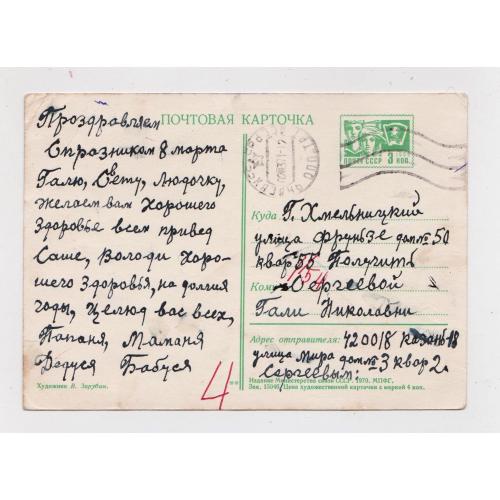 ПОЧТОВАЯ КАРТОЧКА
Проздравляем
С празником 8 марта
Галю, Свету, Людочку,
желаем вам хорошего
здоровье всем привед
Саше, Володи хоро-
шего здоровья, на долгия
годы, целюю вас всех,
Папаня, Маманя
Дедуся Бабуся
Художник В. Зарубин.
4
ПОЧТА СССР 3 КОП.
Куда Г. Хмельницкий
улица Фрунзе дом № 50
квар 55 Получить
154
Кому Сергеевой
Гали Николавни
Адрес отправителя: 420018 Казань-18
улица Мира дом № 3 квар 2
Сергеевым:
Издание Министерства связи СССР. 1970. МПФГ.
Зак. 15046. Цена художественной карточки с маркой 4 коп.